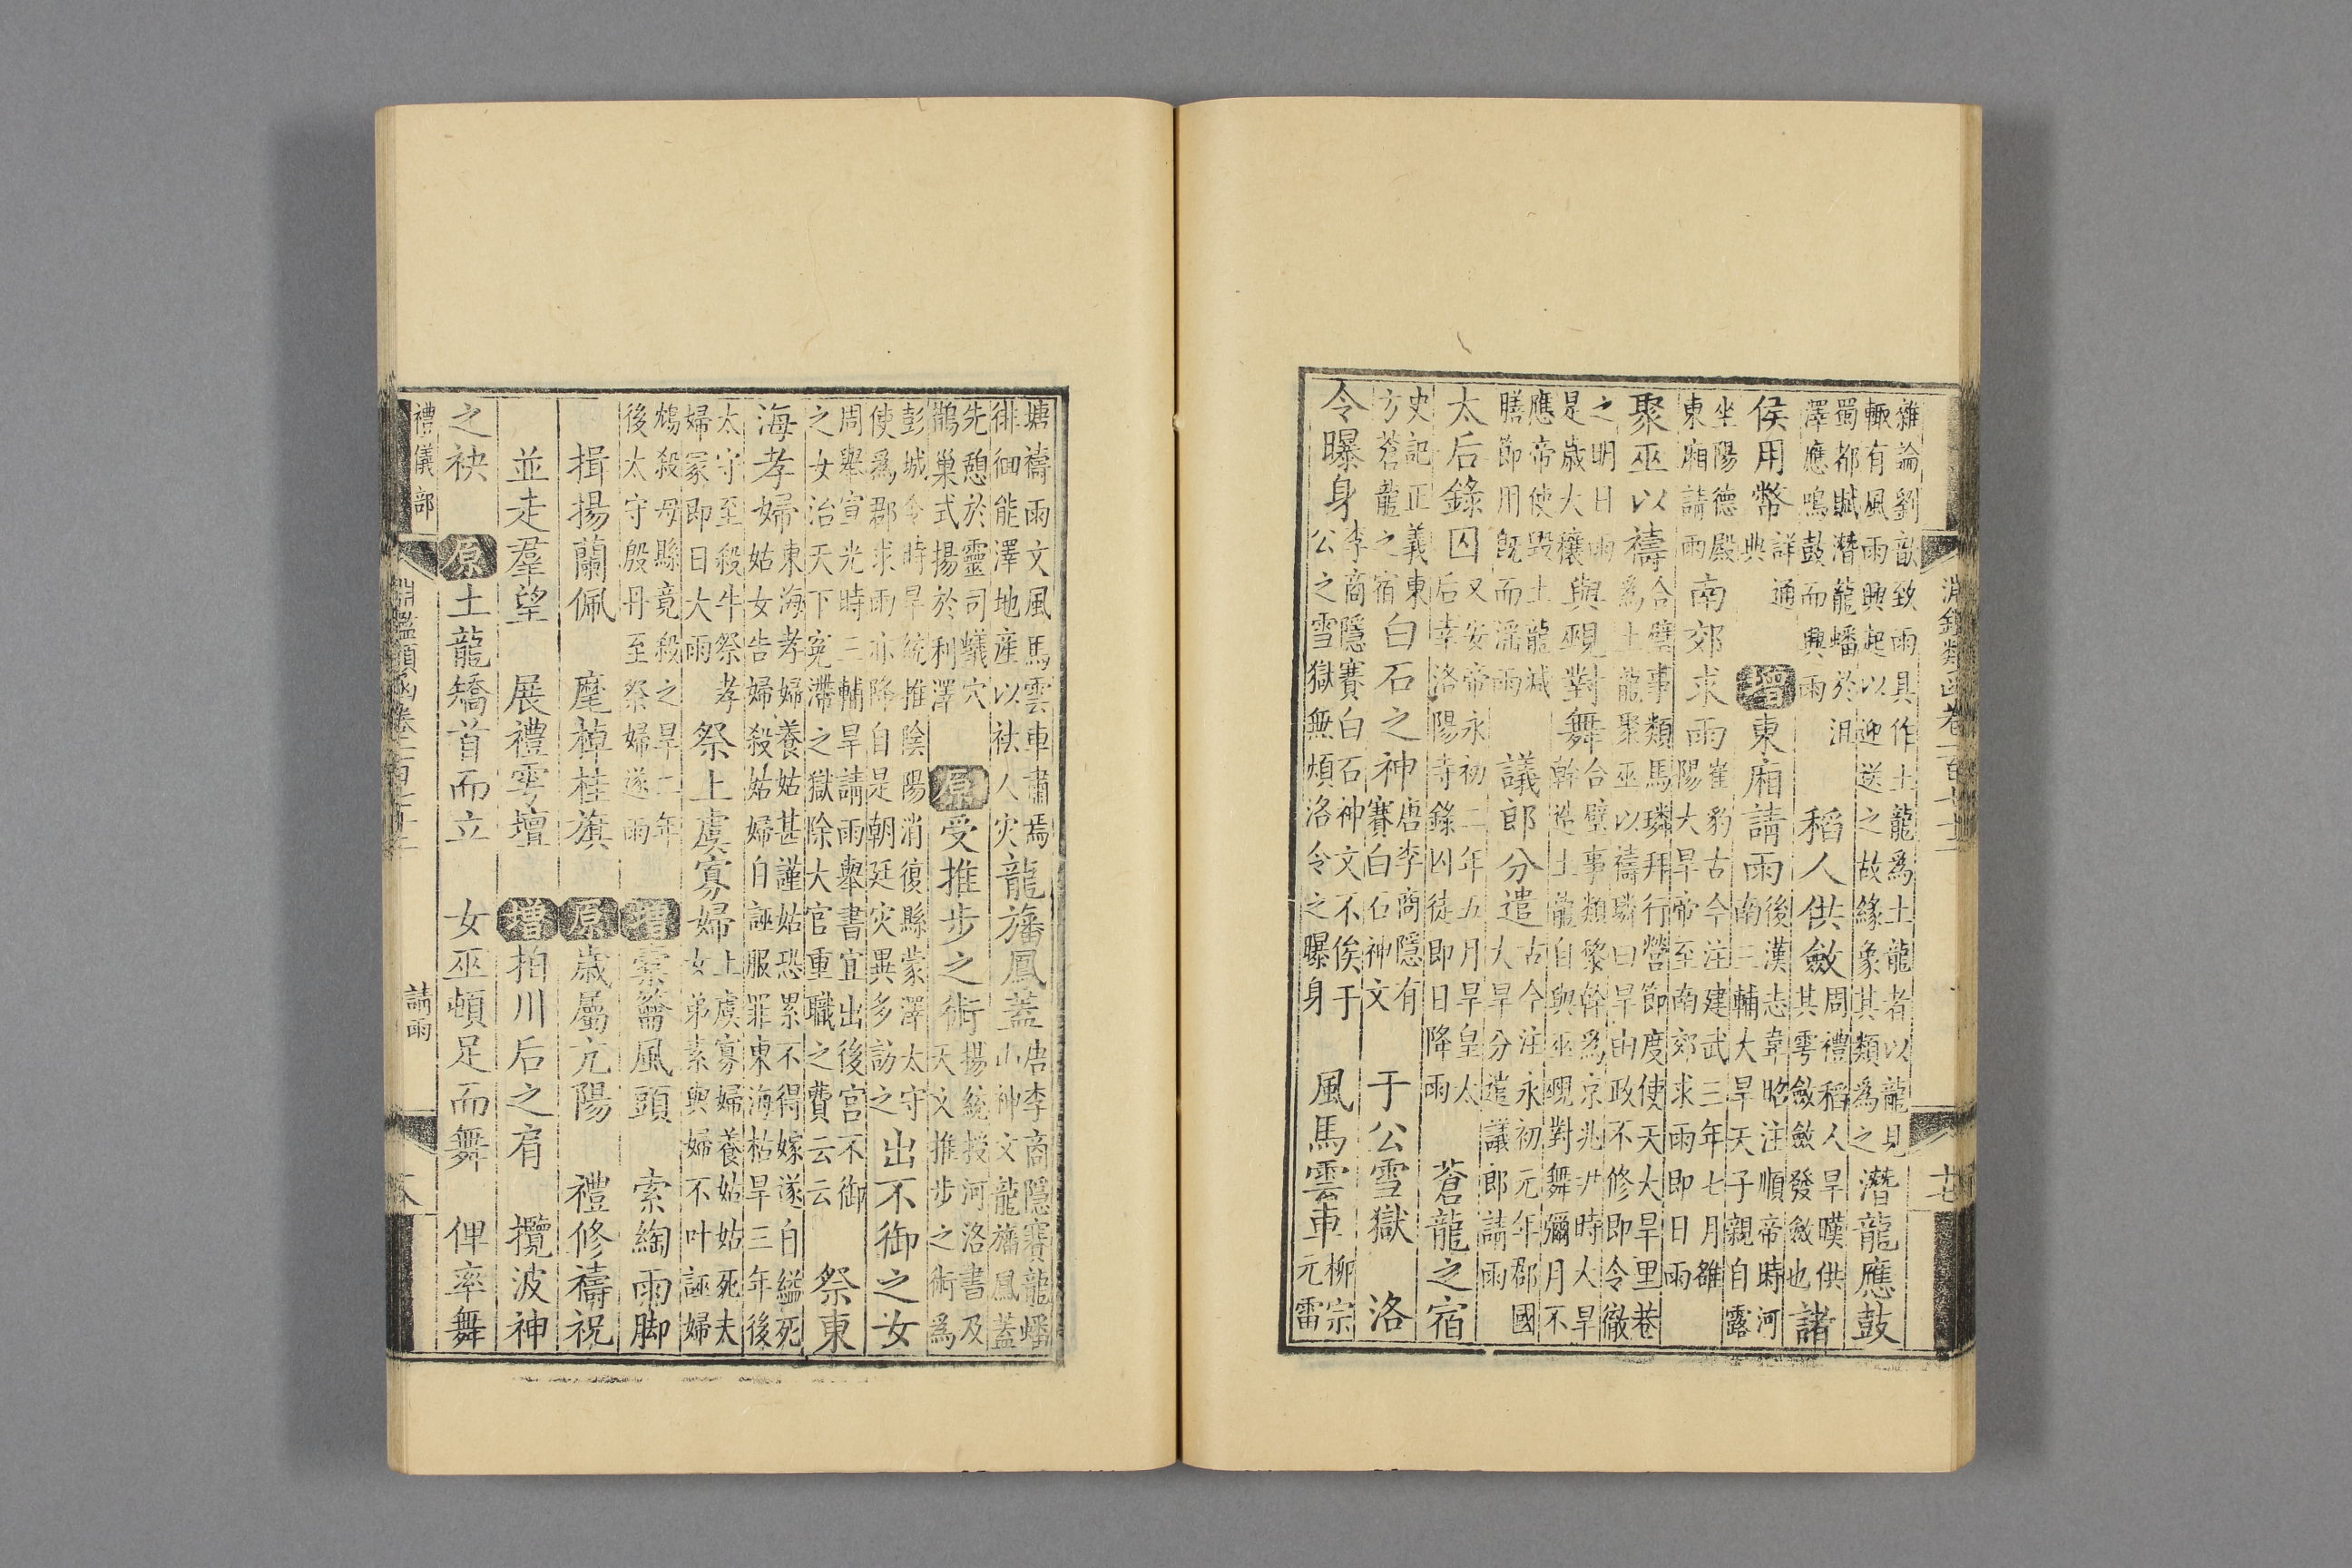 淵鑑類函卷一百七十二
十七
雜論劉歆致雨具作土龍為土龍者以龍見
輙有風雨興起以迎送之故緣象其類為之
潛龍應鼓
蜀都賦潛龍蟠於沮
澤應鳴鼓而興雨
稻人供斂
周禮稻人旱暵供
其雩斂斂發斂也
諸
侯用幣
詳通
典
增東廂請雨
後漢志韋昭注順帝時河
南三輔大旱天子親自露
坐陽德殿
東廂請雨
南郊求雨
崔豹古今注建武三年七月雒
陽大旱帝至南郊求雨即日雨
聚巫以禱
合璧事類馬璘拜行營節度使天大旱里巷
為土龍聚巫以禱璘曰旱由政不修即令徹
之明日雨
是歲大穰
與覡對舞
合璧事類黎幹為京兆尹時大旱
幹造土龍自與巫覡對舞彌月不
應帝使毀土龍減
膳節用既而霪雨
議郎分遣
古今注永初元年郡國
大旱分遣議郎請雨
太后錄囚
又安帝永初二年五月旱皇太
后幸洛陽寺錄囚徒即日降雨
蒼龍之宿
史記正義東
方蒼龍之宿
白石之神
唐李商隱有
賽白石神文
于公雪獄 洛
令曝身
李商隱賽白石神文不俟于
公之雪獄無煩洛令之曝身
風馬雲車
柳宗
元雷
塘禱雨文風馬雲車肅焉
徘徊能澤地產以祛人灾
龍旛鳳蓋
唐李商隱賽龍蟠
山神文龍旛鳳蓋
先憩於靈司蟻穴
鵲巢式揚於利澤
原受推步之術
楊統授河洛書及
天文推步之術為
彭城令時旱統推陰陽消復縣蒙澤太守
使為郡求雨亦降自是朝廷灾異多訪之
出不御之女
周舉宣光時三輔旱請雨舉書宜出後宮不御
之女治天下寃滯之獄除大官重職之費云云
祭東
海孝婦
東海孝婦養姑甚謹姑恐累不得嫁遂自縊死
姑女告婦殺姑婦自誣服罪東海枯旱三年後
太守至殺牛祭孝
婦冢即日大雨
祭上虞寡婦
上虞寡婦養姑姑死夫
女弟素與婦不叶誣婦
鴆殺母縣竟殺之旱二年
後太守殷丹至祭婦遂雨
增橐籥風頭 索綯雨脚
揖揚蘭佩 麾棹桂旗 原歲屬亢陽 禮修禱祝
並走羣望 展禮雩壇 增拍川后之肩 攬波神
之袂 原土龍矯首而立 女巫頓足而舞 俾率舞
禮儀部
淵鑑類函卷一百七十二
請雨